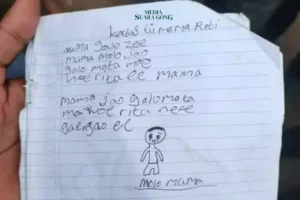 MEDIA
SUARA GONG
Kertas Tii mama Reti
mama galo zee
mama molo jao
galo mata mae
woe rita ee mama
mama jao galo mata
mae woe rita nee
gaergao ee
molo mama